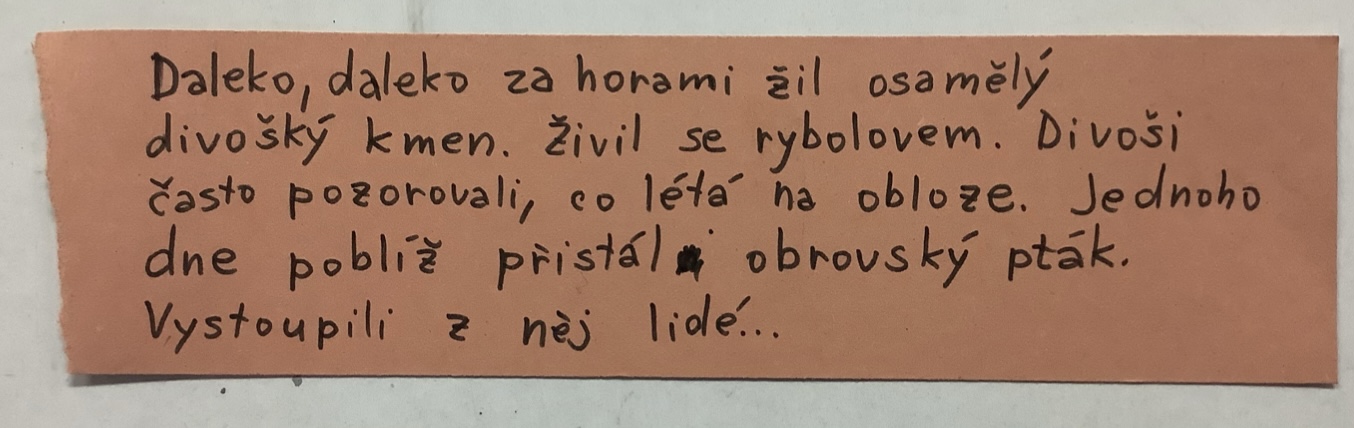 Daleko, daleko za horami žil osamělý
divošský kmen. Živil se rybolovem. Divoši
často pozorovali, co létá na obloze. Jednoho
dne poblíž přistál obrovský pták.
Vystoupili z něj lidé...